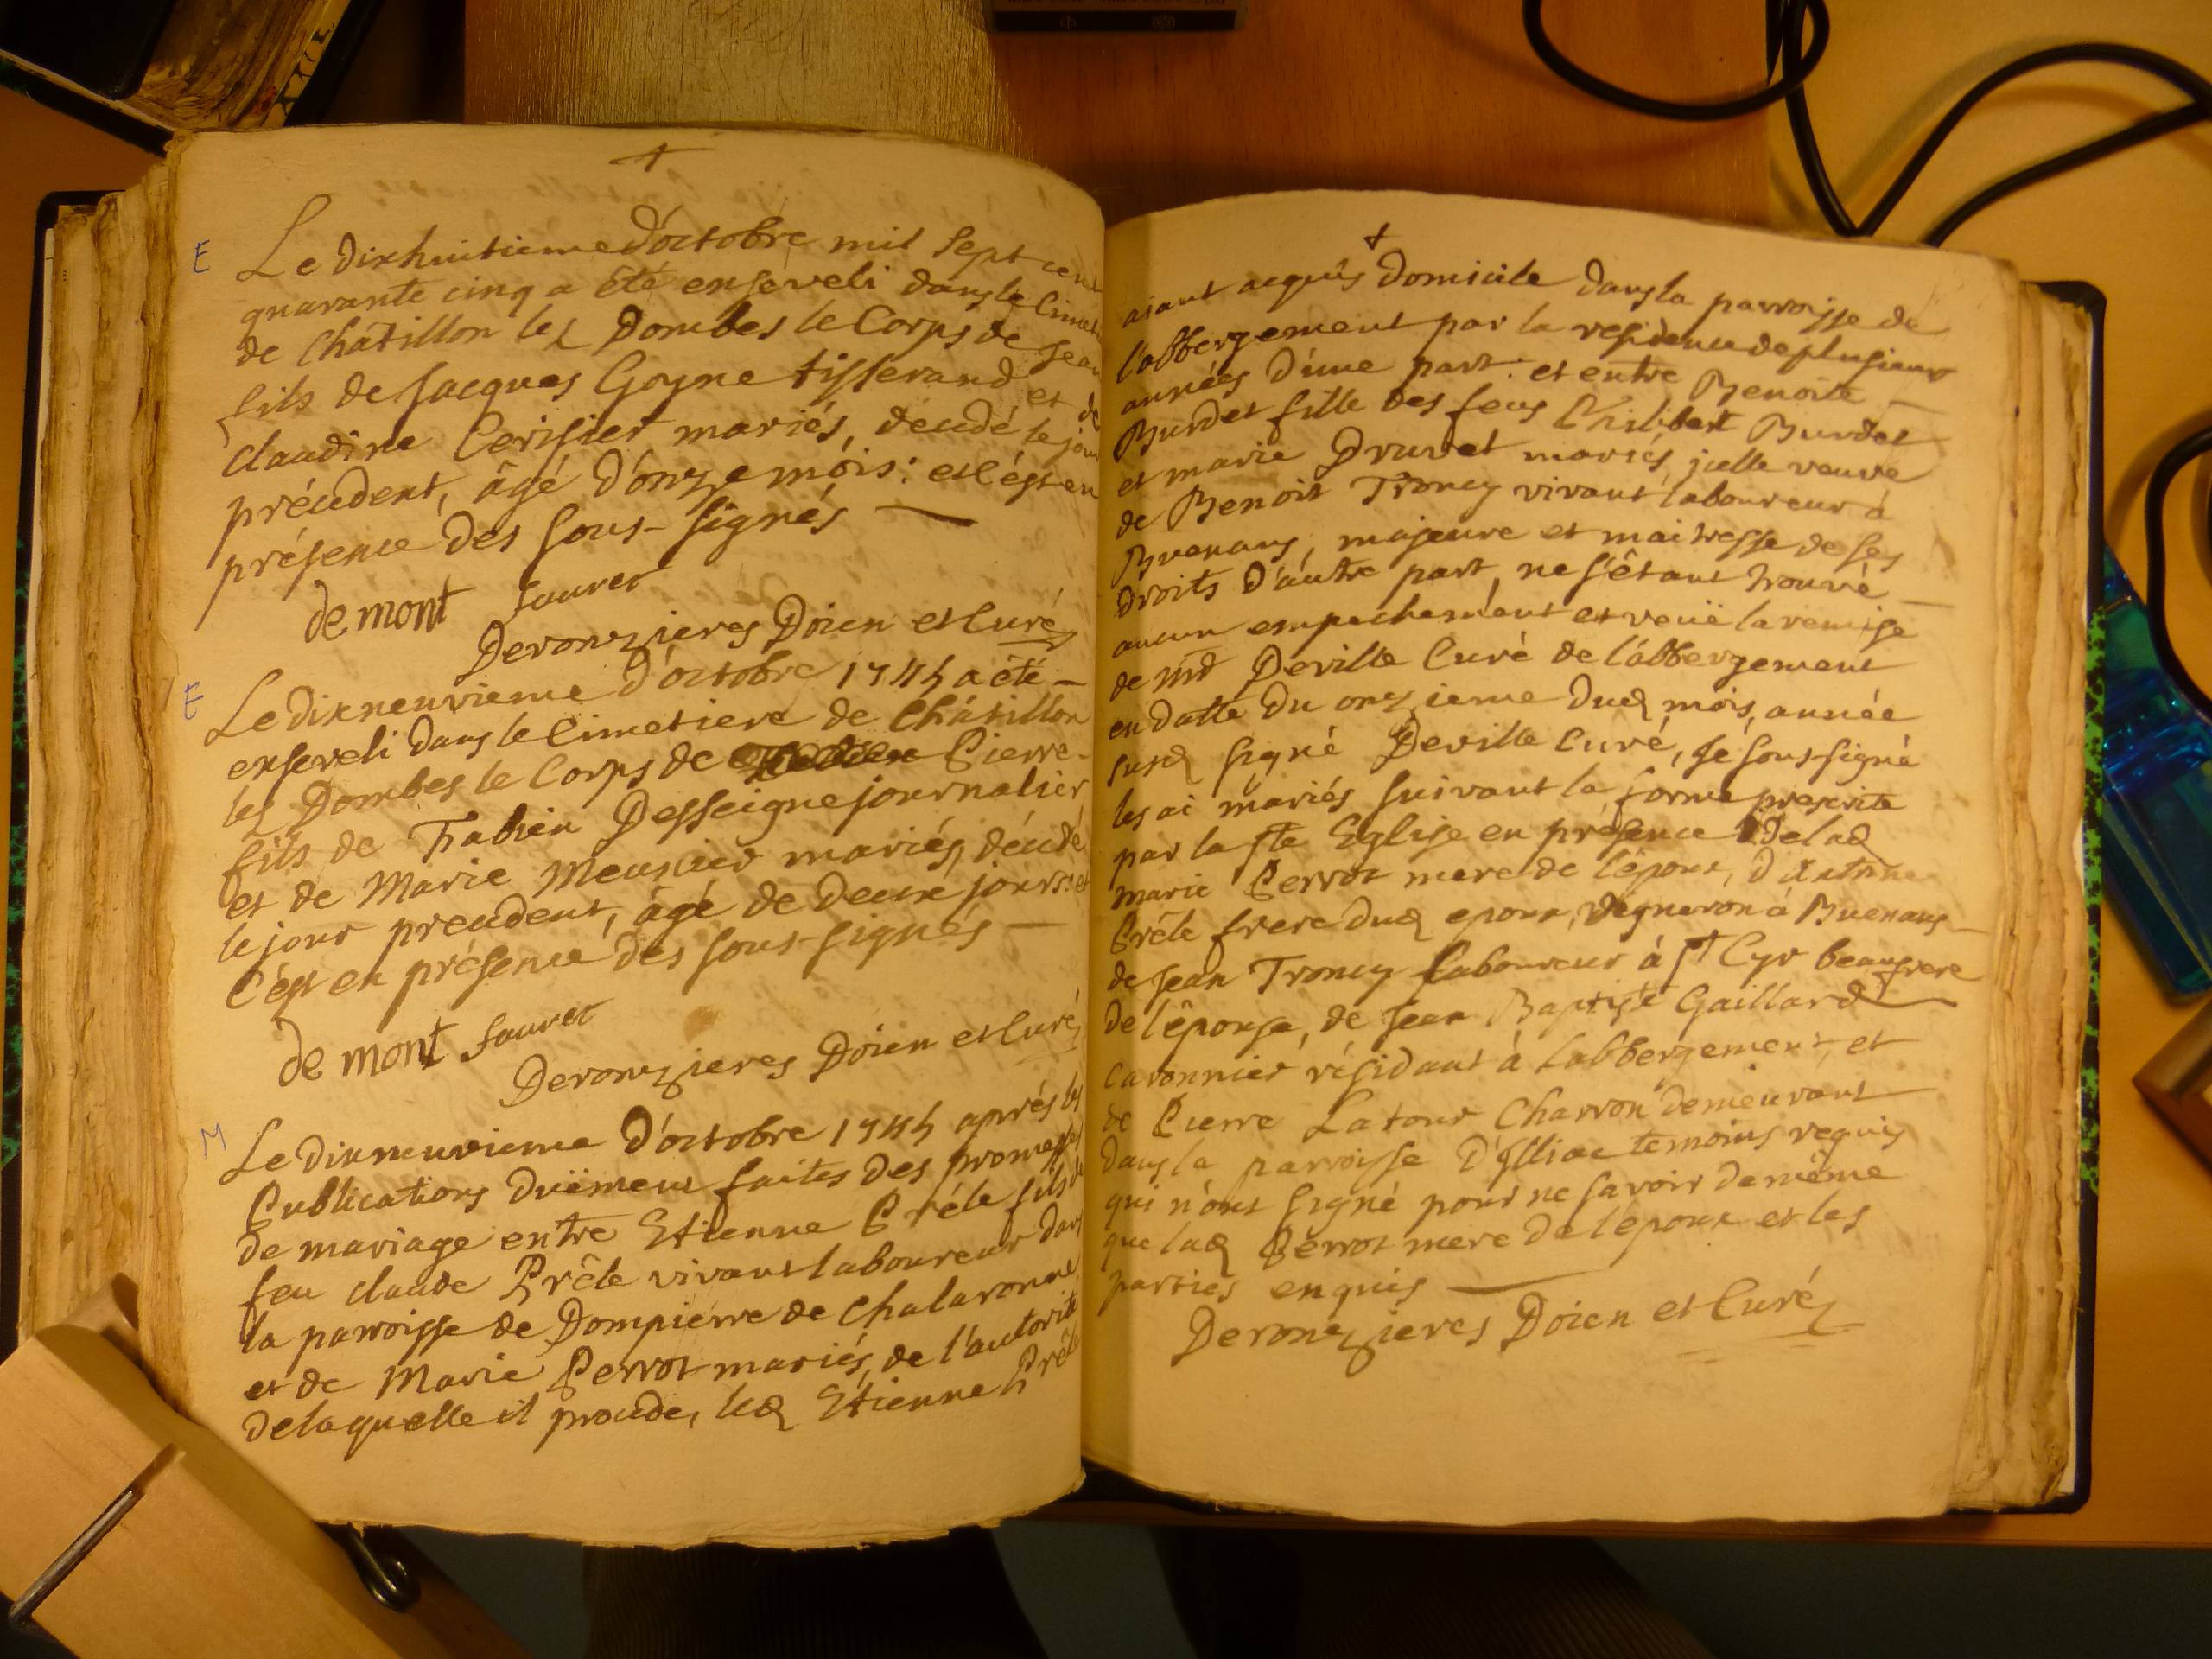 E
Le dixhuitieme d'octobre mil sept cent
quarante cinq a été enseveli dans le Cimeti
de Châtillon les Dombes le Corps de Jean
fils de Jacques Goyne tisserand et de
claudine Cerisier mariés, décédé le jour
précedent, âgé d'onze mois: et c'est en
présence des sous-signés —
de mont Sauret
Deronzieres Doien et Curé
E
Le dixneuvieme d'octobre 1745 a été —
enseveli dans le Cimetiere de Châtillon
les Dombes le Corps de Pierre-
fils de Fabien Desseigne journalier
et de Marie Meunier mariés, décédé
le jour precedent, âgé de deux jours: et
C'est en présence des sous-signés —
de mont Sauret
Deronzieres Doien et Curé
M
Le dixneuvieme d'octobre 1745 aprés les
Publications duëment faites des promesses
de mariage entre Etienne Prêle fils de
feu claude Prêle vivant laboureur dans
la parroisse de Dompierre de Chalaronne
et de Marie Perrot mariés, de l'autorité
de laquelle il procede, led Etienne Prêle
aiant acquis domicile dans la parroisse de
l'abbergement par la residence de plusieurs
années d'une part: et entre Benoite —
Burdet fille des feus Philibert Burdet
et marie Druvet mariés, icelle veuve
de Benoit Troncy vivant laboureur à
Buenans, majeure et maitresse de ses
droits d'autre part, ne s'étant trouvé —
aucun empechement et veuë la remise
de Mr Deville Curé de l'abbergement
en datte du onzieme dud mois, année
susd signé Deville Curé, Je sous-signé
les ai mariés suivant la forme prescrite
par la Ste Eglise en présence de lad
marie Perrot mere de l'epoux, d'Antoine
Prêle frere dud epoux, vigneron à Buenans —
de Jean Troncy laboureur à St Cyr beaufrere
de l'épouse, de Jean Baptiste Gaillard
cavonnier résidant à l'abbergement, et
de Pierre Latour Charron demeurant
dans la parroisse D'Illiac temoins requis
qui n'ont signé pour ne savoir de même
que lad Perrot mere de l'epoux et les
parties enquis —
Deronzieres Doien et Curé